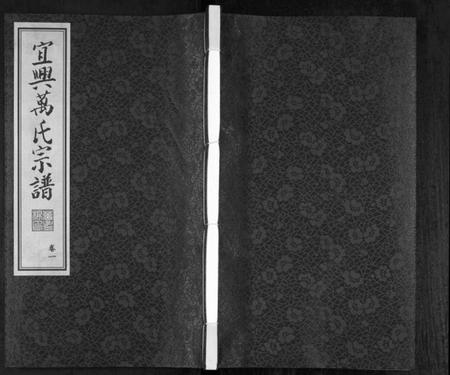 宜興萬氏宗譜
卷一